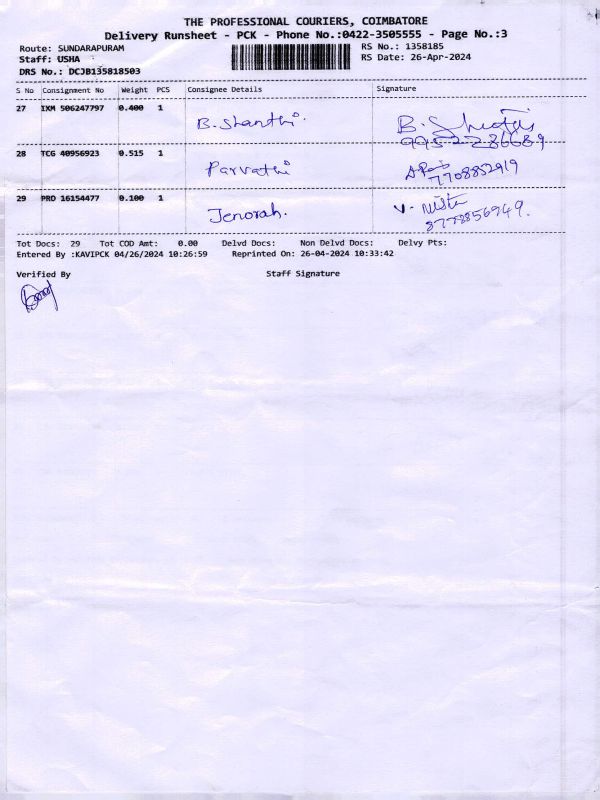 THE PROFESSIONAL COURIERS, COIMBATORE
Delivery Runsheet - PCK - Phone No.:0422-3505555 - Page No.:3
Route: SUNDARAPURAM
RS No.: 1358185
Staff: USHA
RS Date: 26-Apr-2024
DRS No.: DCJB135818503
S No Consignment No Weight PCS Consignee Details Signature
27 IXM 506247797 0.400 1
B. Shanthi. B.
9952286689
28 TCG 40956923 0.515 1
Parvathi
7708852919
29 PRD 16154477 0.100 1
Jenorah. V.
8778856949.
Tot Docs: 29 Tot COD Amt: 0.00 Delvd Docs: Non Delvd Docs: Delvy Pts:
Entered By :KAVIPCK 04/26/2024 10:26:59 Reprinted On: 26-04-2024 10:33:42
Verified By Staff Signature